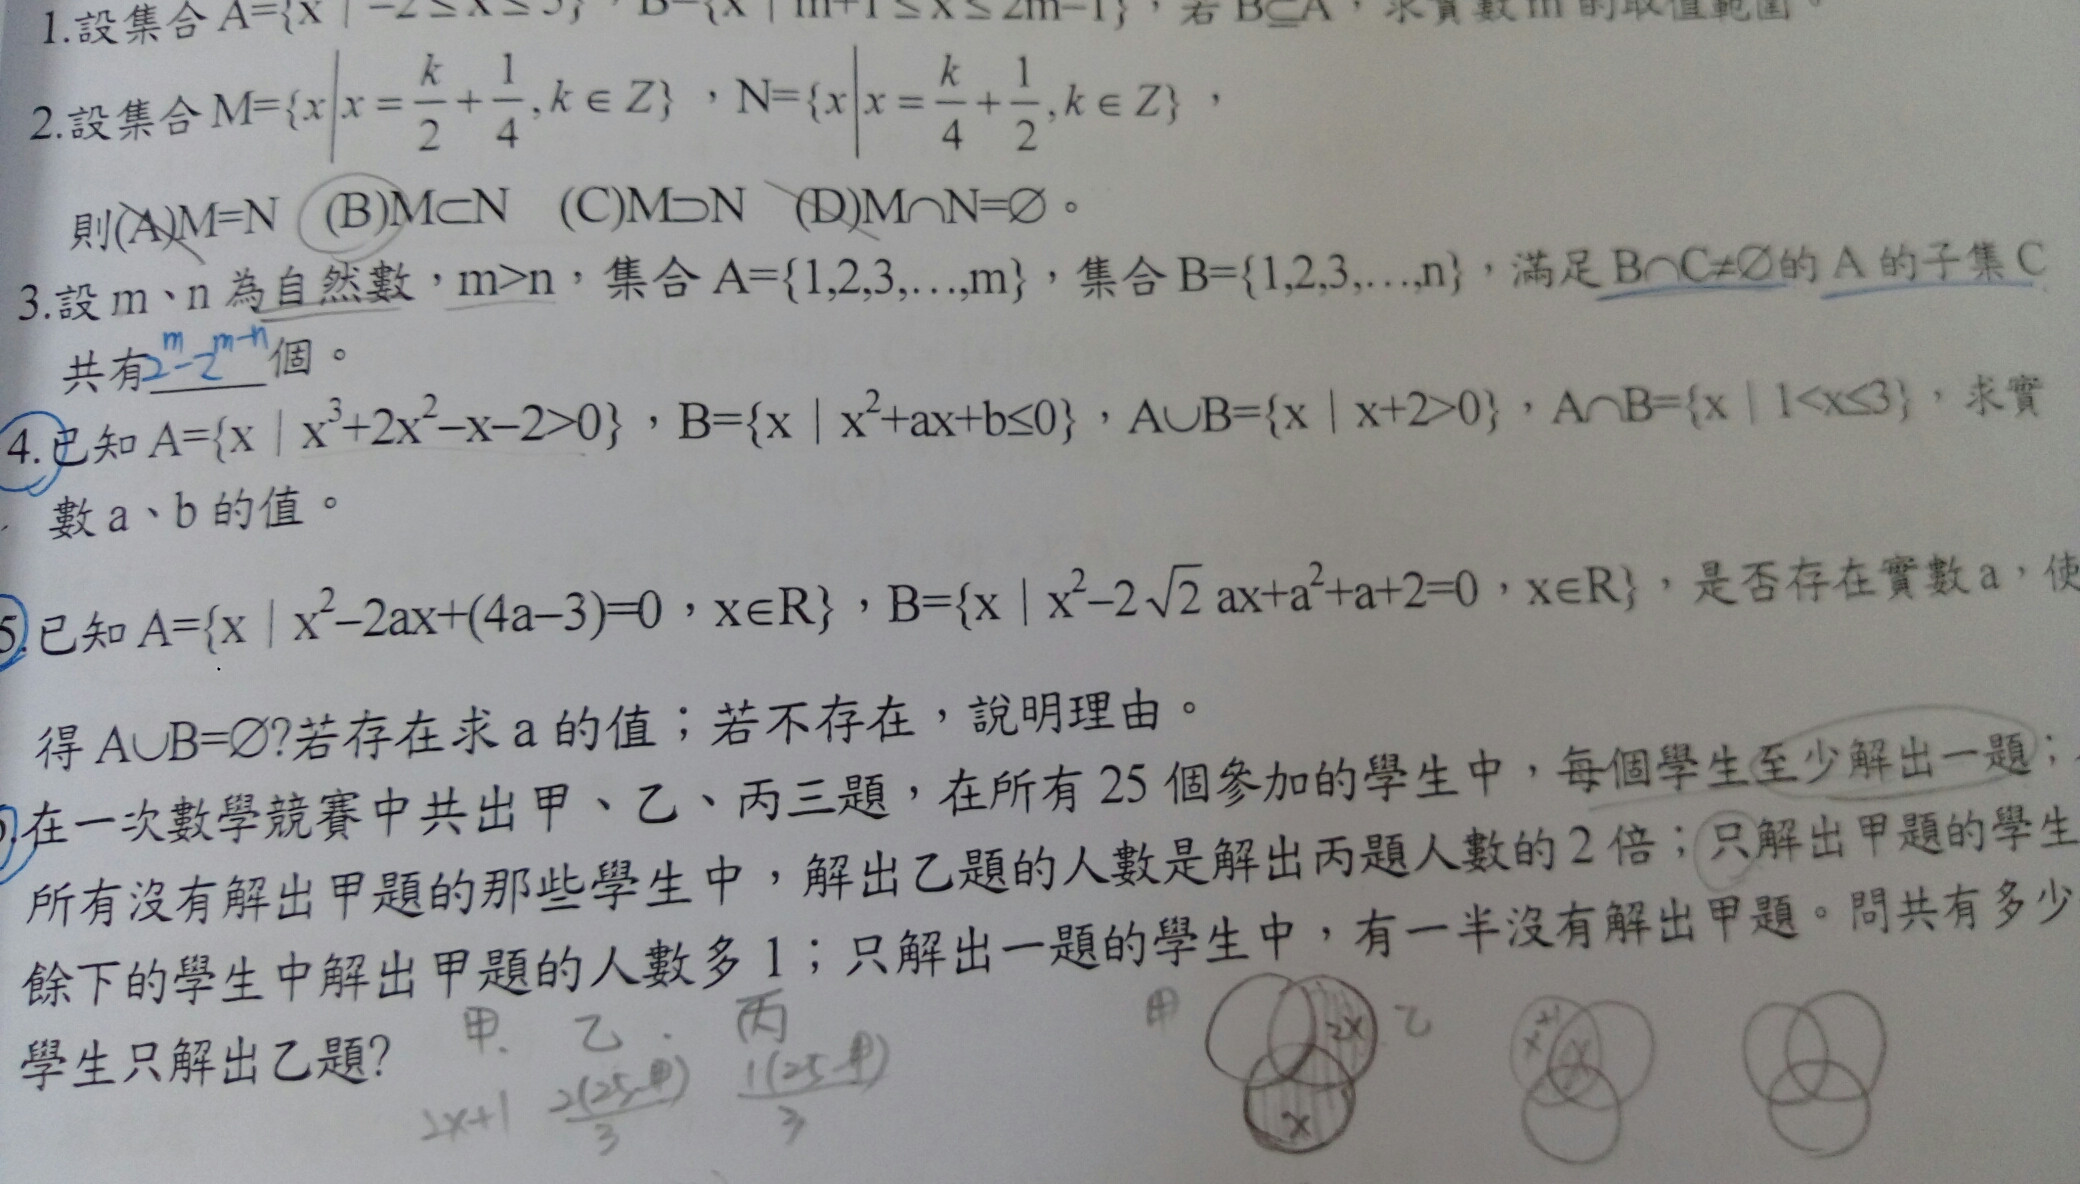 1.設集合 A={x | −2≤x≤5}，B={x | m+1≤x≤2m−1}，若 B⊆A，求實數 m 的取值範圍。
2.設集合 M={x|x = k/2 + 1/4, k ∈ Z}，N={x|x = k/4 + 1/2, k ∈ Z}，
則(A)M=N (B)M⊂N (C)M⊃N (D)M∩N=∅。
3.設 m、n 為自然數，m>n，集合 A={1,2,3,…,m}，集合 B={1,2,3,…,n}，滿足 B∩C≠∅的 A 的子集 C
共有2^m−2^(m−n)個。
4.已知 A={x | x³+2x²−x−2>0}，B={x | x²+ax+b≤0}，A∪B={x | x+2>0}，A∩B={x | 1<x≤3}，求實
數 a、b 的值。
5.已知 A={x | x²−2ax+(4a−3)=0，x∈R}，B={x | x²−2√2 ax+a²+a+2=0，x∈R}，是否存在實數 a，使
得 A∪B=∅?若存在求 a 的值；若不存在，說明理由。
在一次數學競賽中共出甲、乙、丙三題，在所有 25 個參加的學生中，每個學生至少解出一題；
所有沒有解出甲題的那些學生中，解出乙題的人數是解出丙題人數的 2 倍；只解出甲題的學生
餘下的學生中解出甲題的人數多 1；只解出一題的學生中，有一半沒有解出甲題。問共有多少
學生只解出乙題?
甲. 乙. 丙
2x+1 2(25-甲)/3 1(25-甲)/3
甲 2x 乙
x
x+1 x